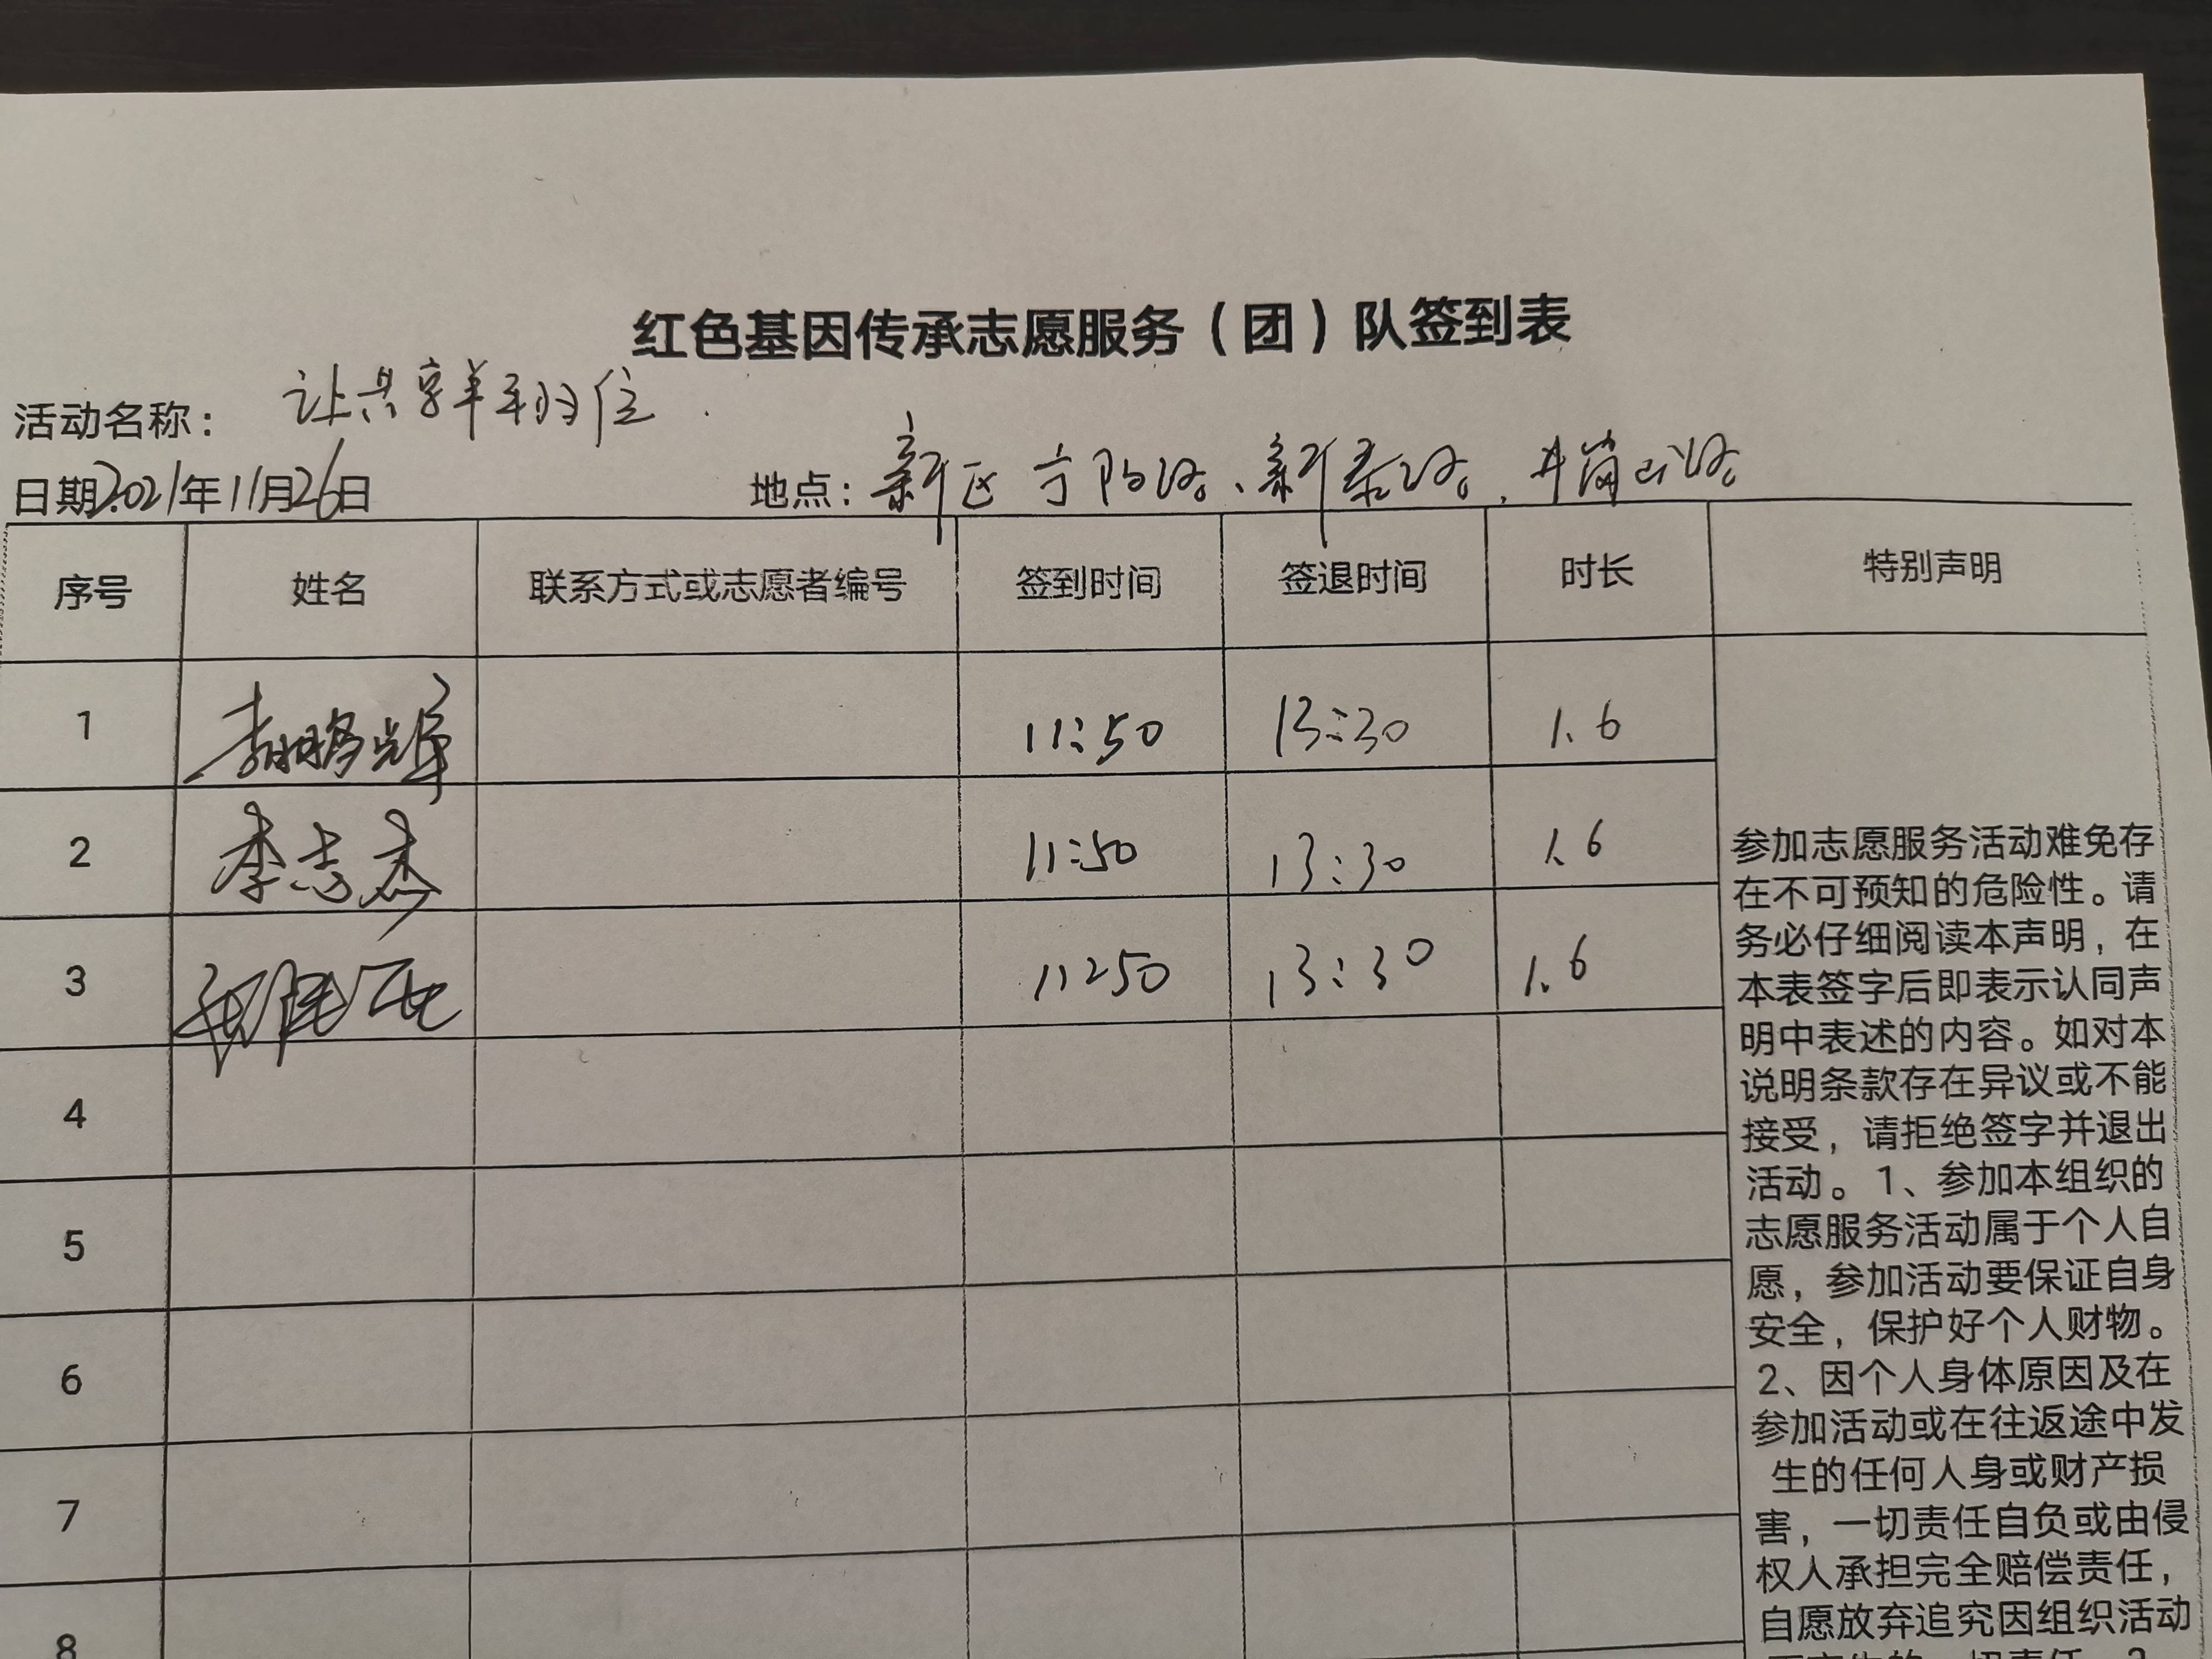 红色基因传承志愿服务（团）队签到表
活动名称： 让共享单车归位
日期2021年11月26日 地点：新区宁阳路、新泰路、井冈山路
序号 姓名 联系方式或志愿者编号 签到时间 签退时间 时长 特别声明
1 11:50 13:30 1.6
2 李志杰 11:50 13:30 1.6
3 11:50 13:30 1.6
4
5
6
7
8
参加志愿服务活动难免存
在不可预知的危险性。请
务必仔细阅读本声明，在
本表签字后即表示认同声
明中表述的内容。如对本
说明条款存在异议或不能
接受，请拒绝签字并退出
活动。1、参加本组织的
志愿服务活动属于个人自
愿，参加活动要保证自身
安全，保护好个人财物。
2、因个人身体原因及在
参加活动或在往返途中发
生的任何人身或财产损
害，一切责任自负或由侵
权人承担完全赔偿责任，
自愿放弃追究因组织活动